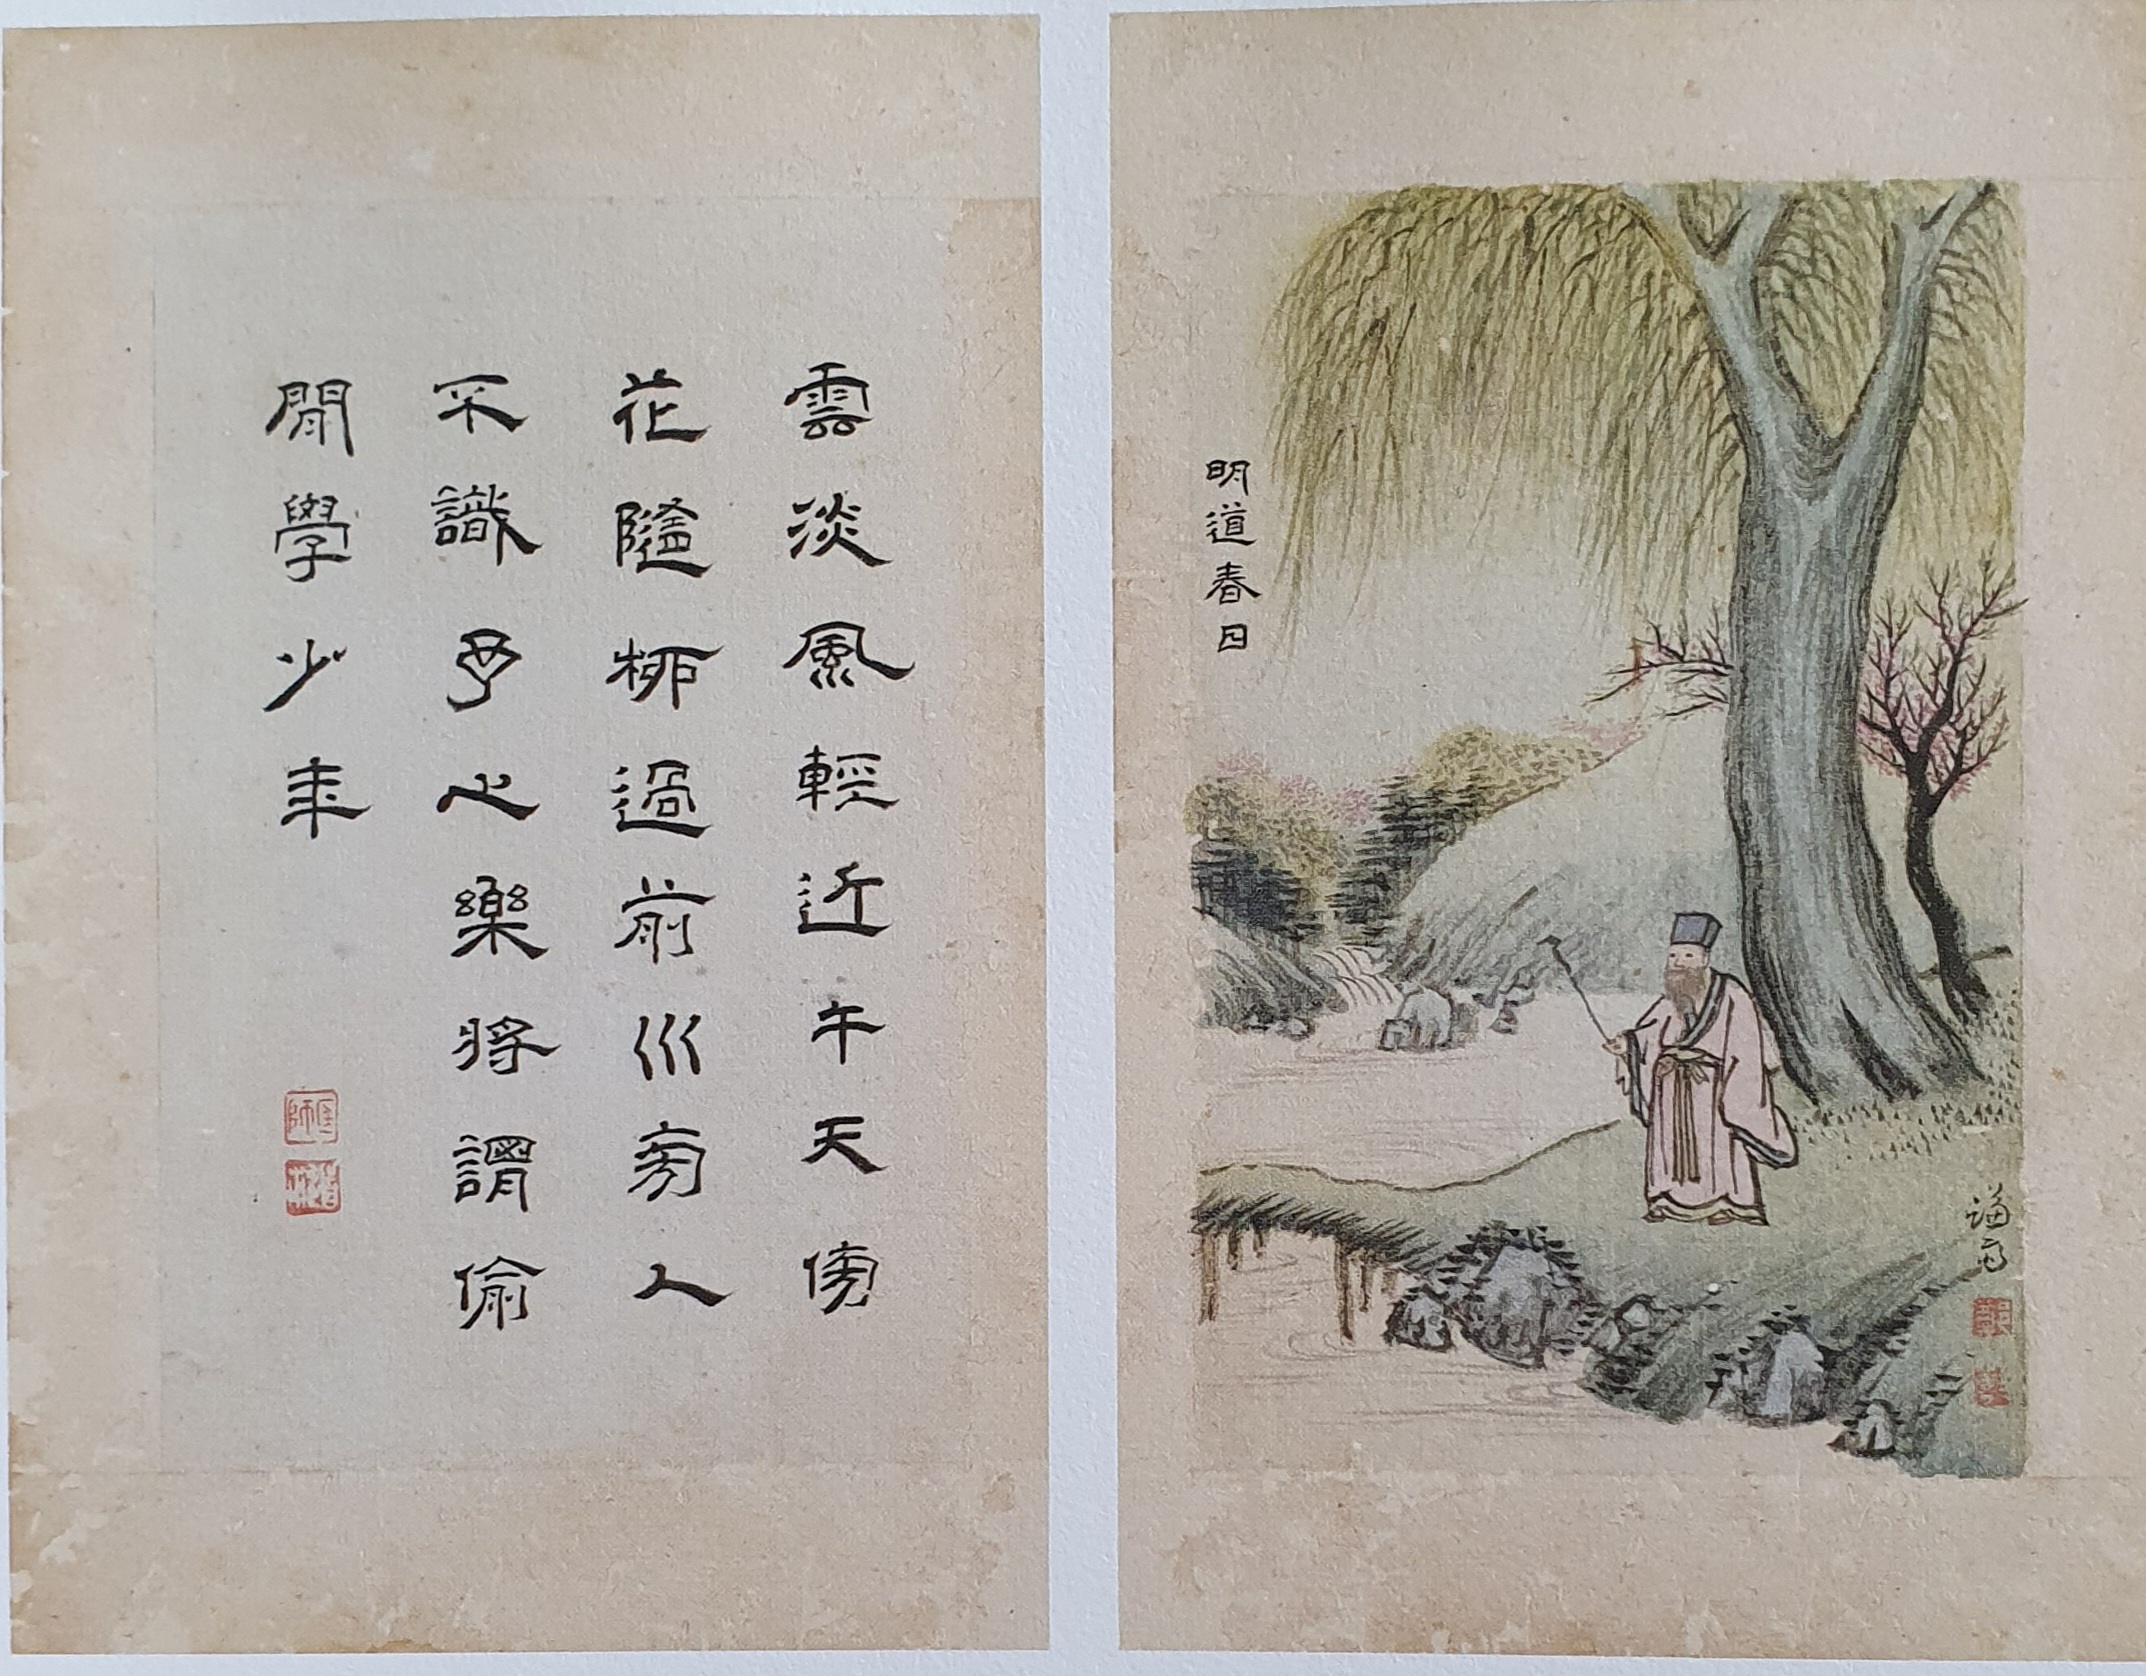 明道春日
雲淡風輕近午天傍
花隨柳過前川旁人
不識予心樂將謂偷
閒學少年